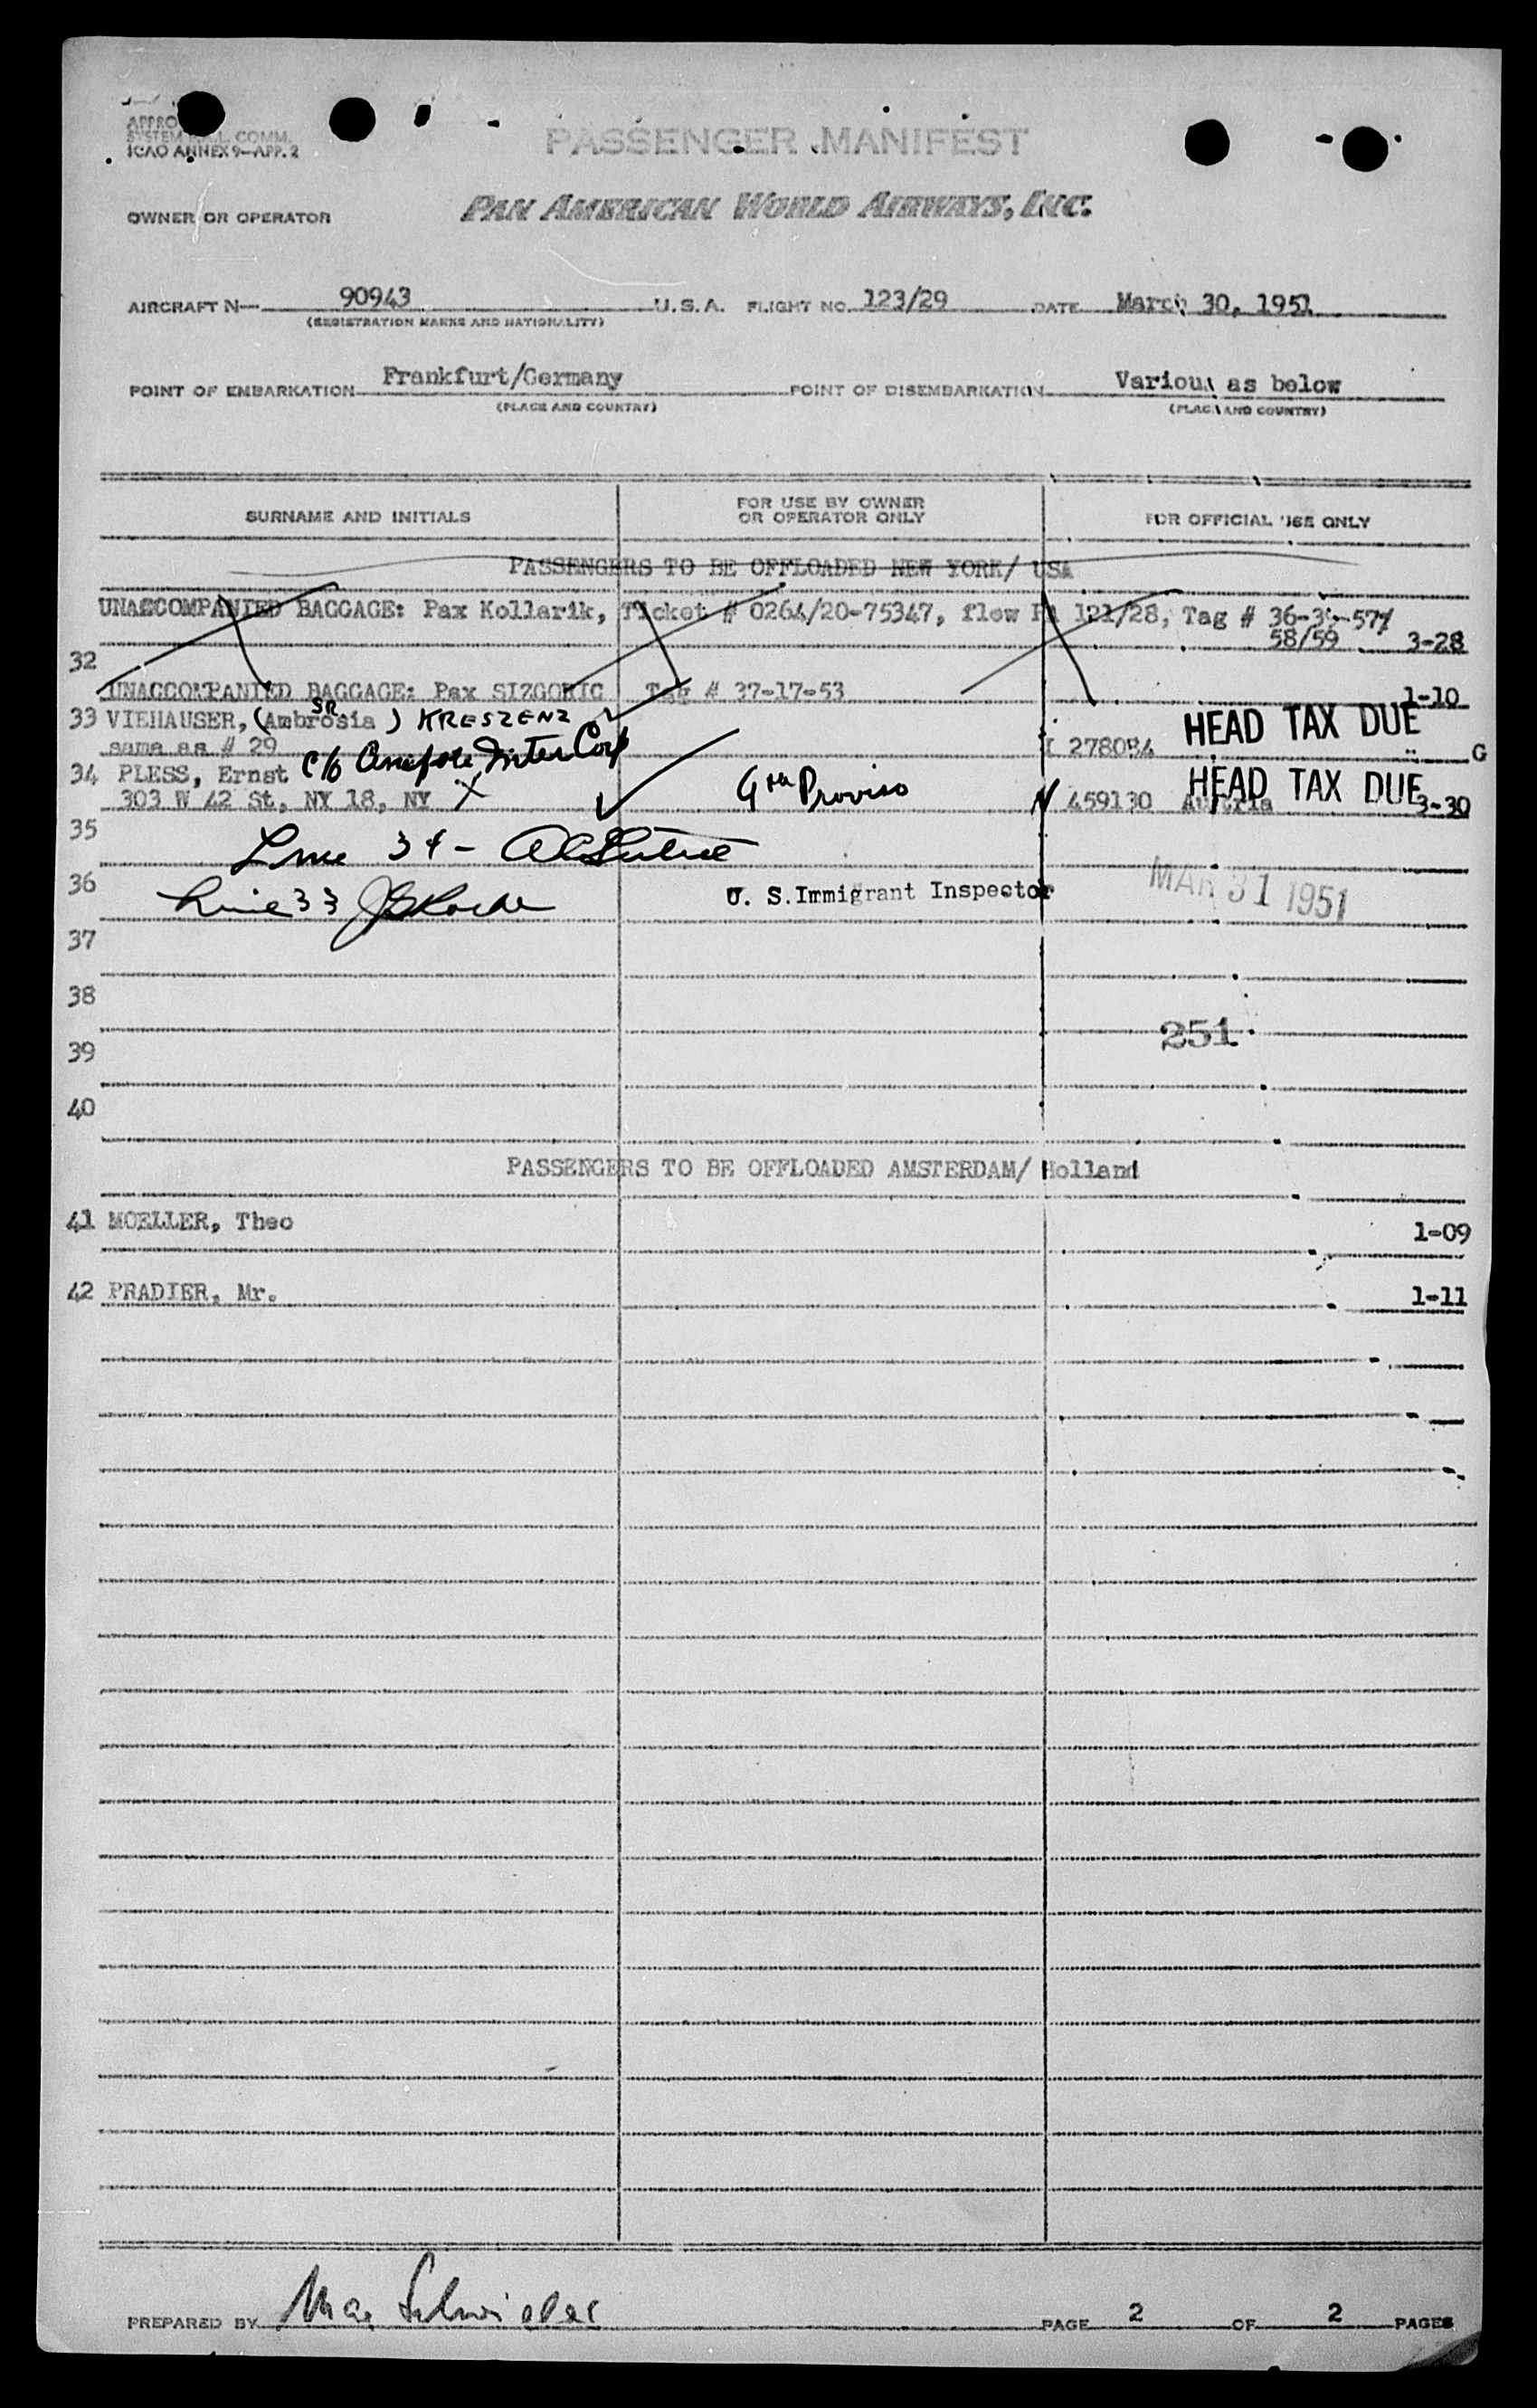 APPRO
SYSTEM L. COMM.
ICAO ANNEX 9—APP. 2
PASSENGER MANIFEST
OWNER OR OPERATOR
PAN AMERICAN WORLD AIRWAYS, INC.
AIRCRAFT N— 90943 U.S.A. FLIGHT NO. 123/29 DATE March 30, 1951
(REGISTRATION MARKS AND NATIONALITY)
POINT OF EMBARKATION Frankfurt/Germany POINT OF DISEMBARKATION Various as below
(PLACE AND COUNTRY) (PLACE AND COUNTRY)
SURNAME AND INITIALS FOR USE BY OWNER OR OPERATOR ONLY FOR OFFICIAL USE ONLY
PASSENGERS TO BE OFFLOADED NEW YORK/ USA
UNACCOMPANIED BAGGAGE: Pax Kollarik, Ticket # 0264/20-75347, flew PA 121/28, Tag #
58/59 3-28
32
UNACCOMPANIED BAGGAGE: Pax SIZGORIC Tag # 37-17-53 1-10
SR
33 VIEHAUSER, (Ambrosia ) KRESZENZ HEAD TAX DUE
same as # 29 278084 G
34 PLESS, Ernst c/o Inter Corp HEAD TAX DUE
303 W 42 St, NY 18, NY X 9th Proviso 459130 Austria 3-30
35
Line 34 -
36
Line 33 U. S. Immigrant Inspector MAR 31 1951
37
38
251
39
40
PASSENGERS TO BE OFFLOADED AMSTERDAM/ Holland
41 MOELLER, Theo 1-09
42 PRADIER, Mr. 1-11
PREPARED BY PAGE 2 OF 2 PAGES